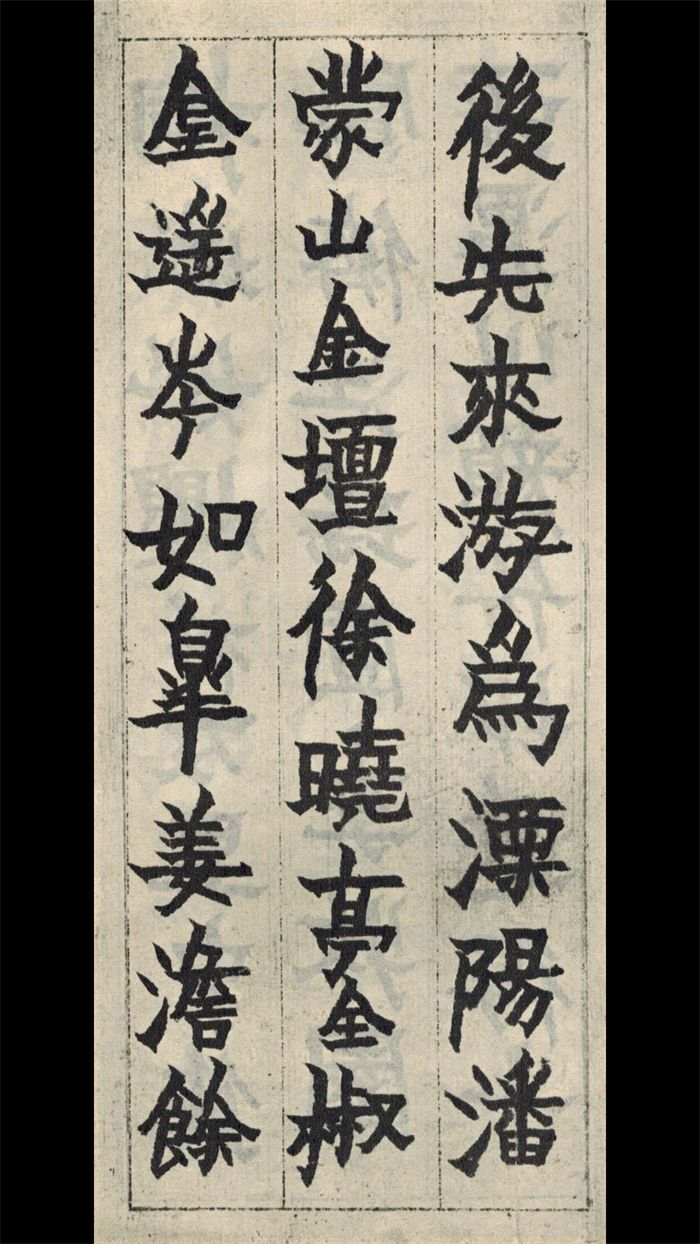 後先來游爲溧陽潘
蒙山金壇徐曉亭全椒
金遥岑如皋姜澹餘